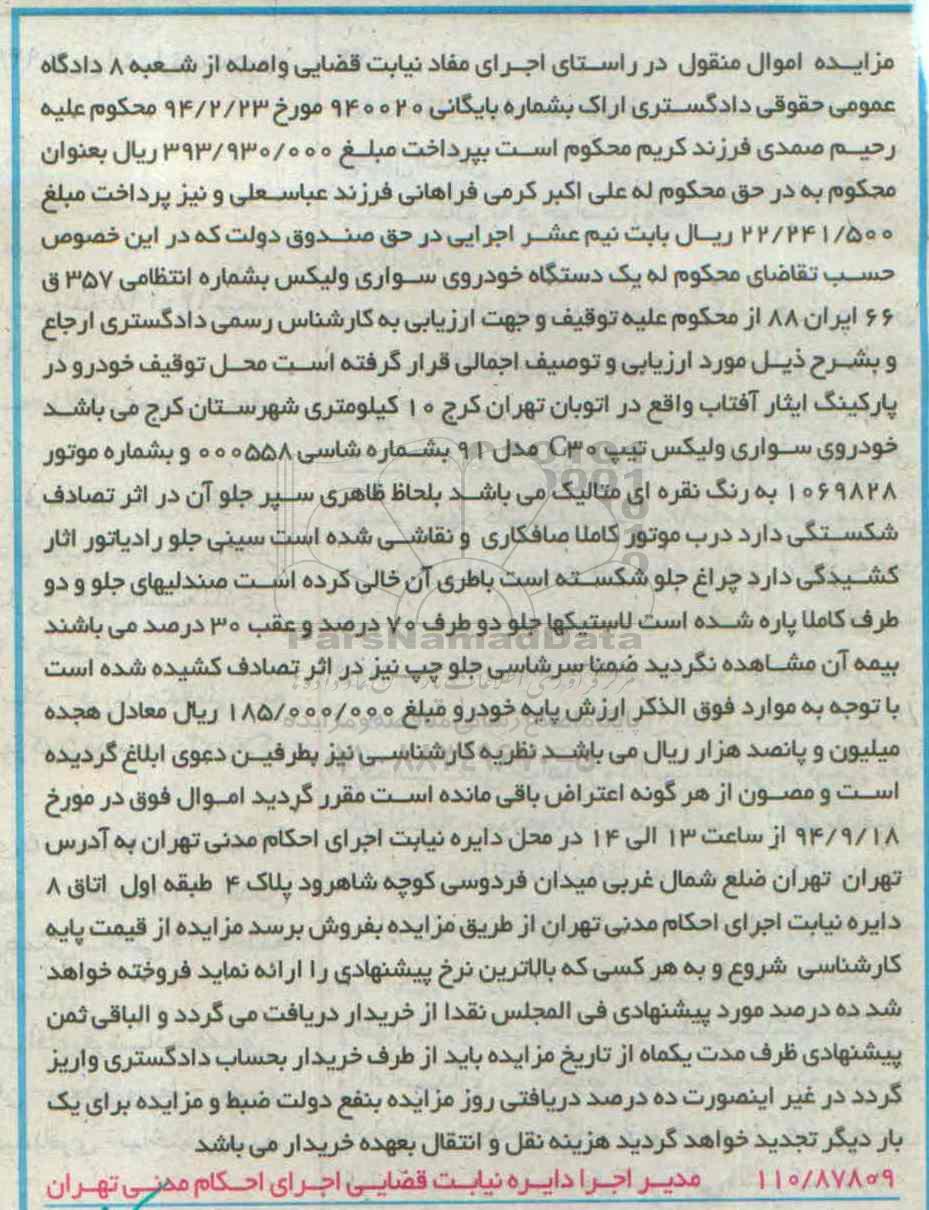 مزایده اموال منقول در راستای اجرای مفاد نیابت قضایی واصله از شعبه ۸ دادگاه
عمومی حقوقی دادگستری اراک بشماره بایگانی ۹۴۰۰۲۰ مورخ ۹۴/۲/۲۳ محکوم علیه
رحیم صمدی فرزند کریم محکوم است بپرداخت مبلغ ۳۹۳/۹۳۰/۰۰۰ ریال بعنوان
محکوم به در حق محکوم له علی اکبر کرمی فراهانی فرزند عباسعلی و نیز پرداخت مبلغ
۲۲/۲۴۱/۵۰۰ ریال بابت نیم عشر اجرایی در حق صندوق دولت که در این خصوص
حسب تقاضای محکوم له یک دستگاه خودروی سواری ولیکس بشماره انتظامی ۳۵۷ ق
۶۶ ایران ۸۸ از محکوم علیه توقیف و جهت ارزیابی به کارشناس رسمی دادگستری ارجاع
و بشرح ذیل مورد ارزیابی و توصیف اجمالی قرار گرفته است محل توقیف خودرو در
پارکینگ ایثار آفتاب واقع در اتوبان تهران کرج ۱۰ کیلومتری شهرستان کرج می باشد
خودروی سواری ولیکس تیپ C۳۰ مدل ۹۱ بشماره شاسی ۰۰۰۵۵۸ و بشماره موتور
۱۰۶۹۸۲۸ به رنگ نقره ای متالیک می باشد بلحاظ ظاهری سپر جلو آن در اثر تصادف
شکستگی دارد درب موتور کاملا صافکاری و نقاشی شده است سینی جلو رادیاتور اثار
کشیدگی دارد چراغ جلو شکسته است باطری آن خالی کرده است صندلیهای جلو و دو
طرف کاملا پاره شده است لاستیکها جلو دو طرف ۷۰ درصد و عقب ۳۰ درصد می باشند
بیمه آن مشاهده نگردید ضمنا سرشاسی جلو چپ نیز در اثر تصادف کشیده شده است
با توجه به موارد فوق الذکر ارزش پایه خودرو مبلغ ۱۸۵/۰۰۰/۰۰۰ ریال معادل هجده
میلیون و پانصد هزار ریال می باشد نظریه کارشناسی نیز بطرفین دعوی ابلاغ گردیده
است و مصون از هر گونه اعتراض باقی مانده است مقرر گردید اموال فوق در مورخ
۹۴/۹/۱۸ از ساعت ۱۳ الی ۱۴ در محل دایره نیابت اجرای احکام مدنی تهران به آدرس
تهران تهران ضلع شمال غربی میدان فردوسی کوچه شاهرود پلاک ۴ طبقه اول اتاق ۸
دایره نیابت اجرای احکام مدنی تهران از طریق مزایده بفروش برسد مزایده از قیمت پایه
کارشناسی شروع و به هر کسی که بالاترین نرخ پیشنهادی را ارائه نماید فروخته خواهد
شد ده درصد مورد پیشنهادی فی المجلس نقدا از خریدار دریافت می گردد و الباقی ثمن
پیشنهادی ظرف مدت یکماه از تاریخ مزایده باید از طرف خریدار بحساب دادگستری واریز
گردد در غیر اینصورت ده درصد دریافتی روز مزایده بنفع دولت ضبط و مزایده برای یک
بار دیگر تجدید خواهد گردید هزینه نقل و انتقال بعهده خریدار می باشد
۱۱۰/۸۷۸۰۹ مدیر اجرا دایره نیابت قضایی اجرای احکام مدنی تهران
ParsNamadData